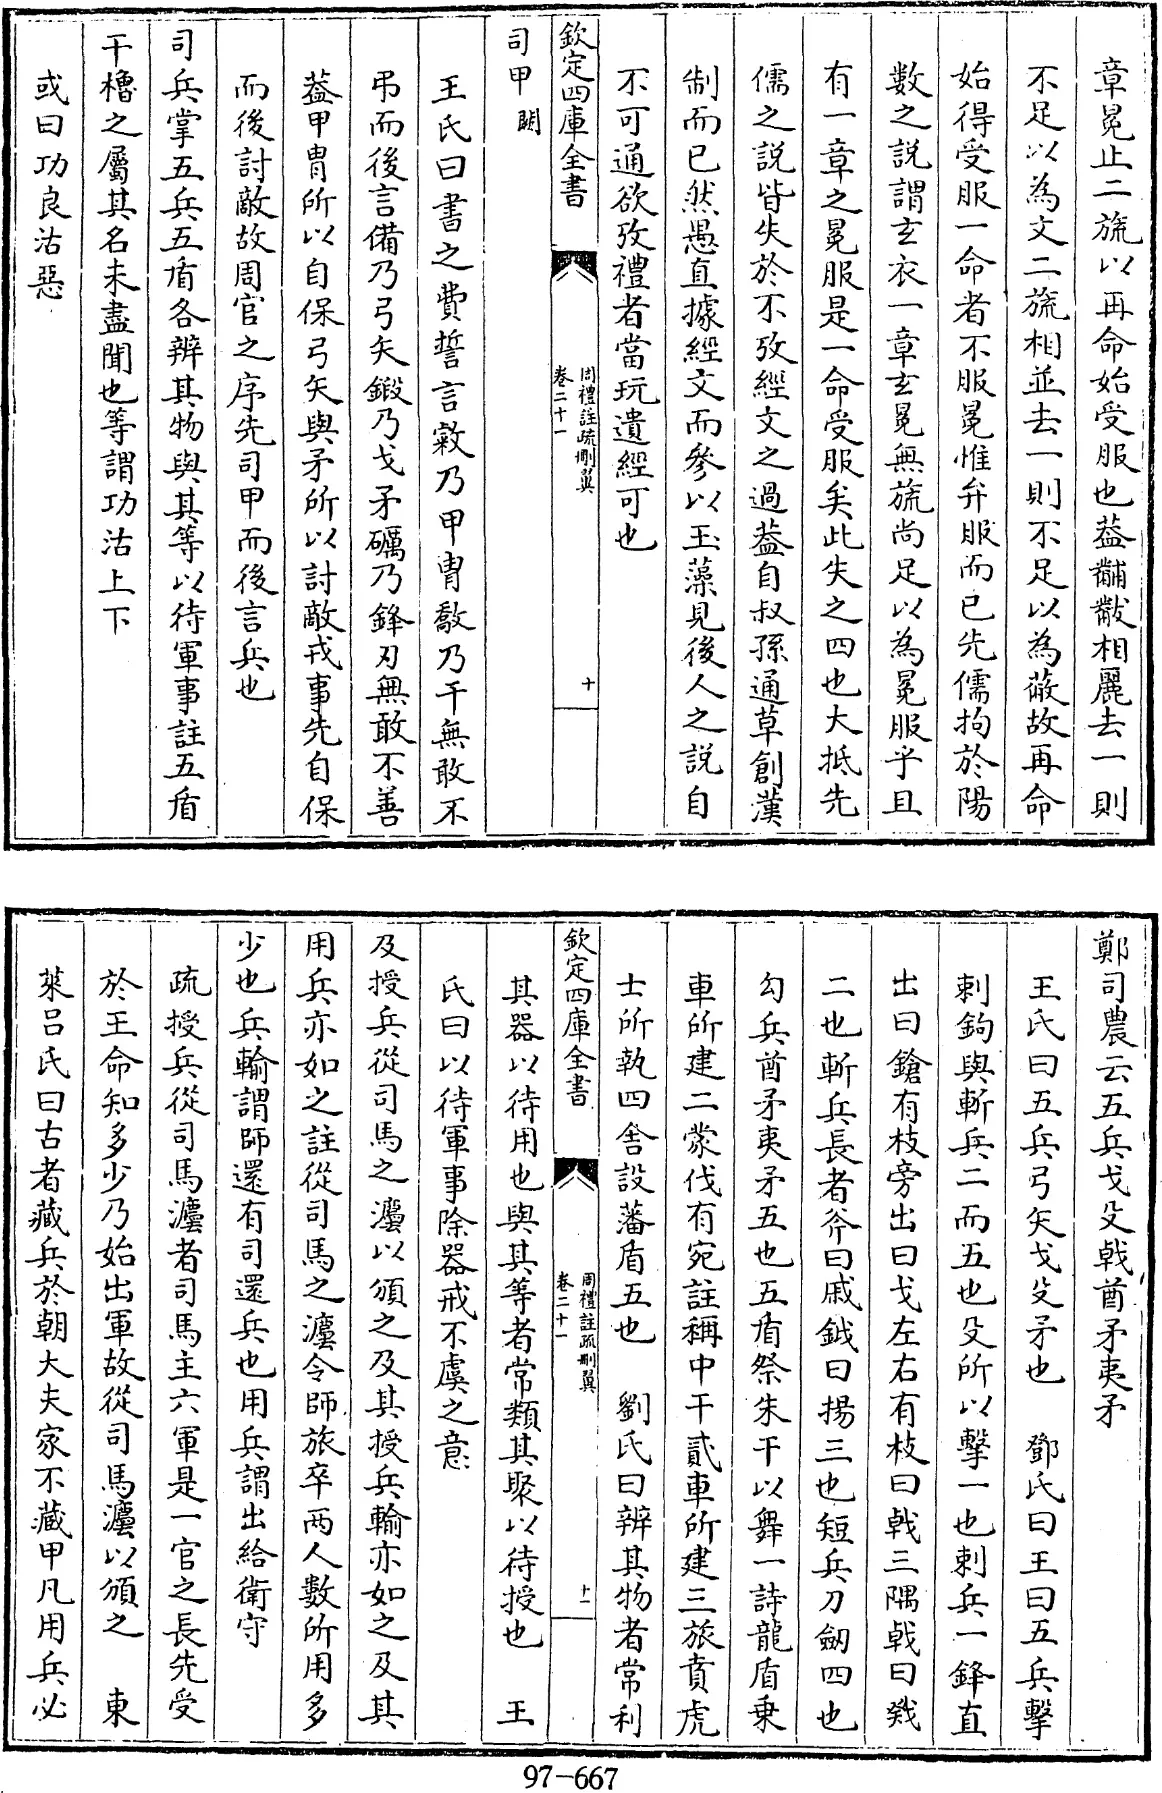 章冕止二旒以再命始受服也葢黼黻相麗去一則
不足以為文二旒相並去一則不足以為蔽故再命
始得受服一命者不服冕惟弁服而已先儒拘於陽
數之説謂玄衣一章玄冕無旒尚足以為冕服乎且
有一章之冕服是一命受服矣此失之四也大抵先
儒之説皆失於不攷經文之過葢自叔孫通草創漢
制而已然愚直據經文而參以玉藻見後人之説自
不可通欲攷禮者當玩遺經可也
欽定四庫全書
周禮註疏刪翼
卷二十一
十
司甲闕
王氏曰書之費誓言敹乃甲冑敽乃干無敢不
弔而後言備乃弓矢鍛乃戈矛礪乃鋒刃無敢不善
葢甲冑所以自保弓矢與矛所以討敵戎事先自保
而後討敵故周官之序先司甲而後言兵也
司兵掌五兵五盾各辨其物與其等以待軍事註五盾
干櫓之屬其名未盡聞也等謂功沽上下
或曰功良沽惡
鄭司農云五兵戈殳戟酋矛夷矛
王氏曰五兵弓矢戈殳矛也 鄧氏曰王曰五兵擊
刺鉤與斬兵二而五也殳所以擊一也刺兵一鋒直
出曰鎗有枝旁出曰戈左右有枝曰戟三隅戟曰戣
二也斬兵長者斧曰戚鉞曰揚三也短兵刀劒四也
勾兵酋矛夷矛五也五盾祭朱干以舞一詩龍盾乗
車所建二蒙伐有宛註稱中干貳車所建三旅賁虎
士所執四舍設藩盾五也 劉氏曰辨其物者常利
欽定四庫全書
周禮註疏刪翼
卷二十一
十一
其器以待用也與其等者常類其聚以待授也 王
氏曰以待軍事除器戒不虞之意
及授兵從司馬之灋以頒之及其授兵輸亦如之及其
用兵亦如之註從司馬之灋令師旅卒兩人數所用多
少也兵輸謂師還有司還兵也用兵謂出給衛守
疏授兵從司馬灋者司馬主六軍是一官之長先受
於王命知多少乃始出軍故從司馬灋以頒之 東
萊呂氏曰古者藏兵於朝大夫家不藏甲凡用兵必
97-667